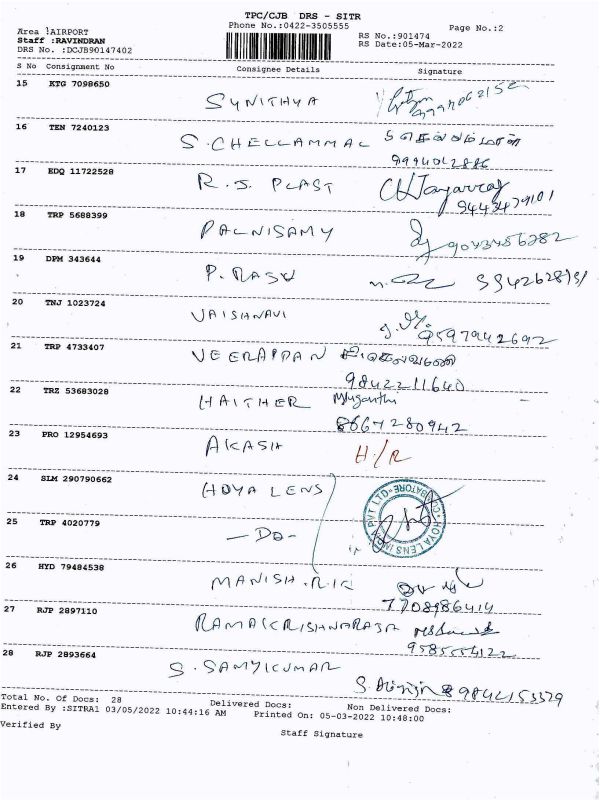 TPC/CJB DRS - SITR
Phone No.:0422-3505555
Page No.:2
Area !AIRPORT
Staff :RAVINDRAN
RS No.:901474
DRS No. :DCJB90147402
RS Date:05-Mar-2022
S No Consignment No Consignee Details Signature
15 KTG 7098650
SYNITHYA
16 TEN 7240123
S.CHELLAMMAL
9994042886
17 EDQ 11722528
R.J. PLAST
9443479101
18 TRP 5688399
PALNISAMY
9043456282
19 DPM 343644
P.RASU
20 TNJ 1023724
VAISHNAVI
21 TRP 4733407
VEERAPPAN
9842211640
22 TRZ 53683028
HAITHER
8667280942
23 PRO 12954693
AKASH H/R
24 SLM 290790662
HOYA LENS
HOYA LENS INDIA PVT LTD
25 TRP 4020779
-DO-
26 HYD 79484538
MANISH.RIC
7708986414
27 RJP 2897110
RAMAKRISHNARAJA
28 RJP 2893664
S.SAMYIKUMAR
Total No. Of Docs: 28 Delivered Docs: Non Delivered Docs:
Entered By :SITRA1 03/05/2022 10:44:16 AM Printed On: 05-03-2022 10:48:00
Verified By
Staff Signature